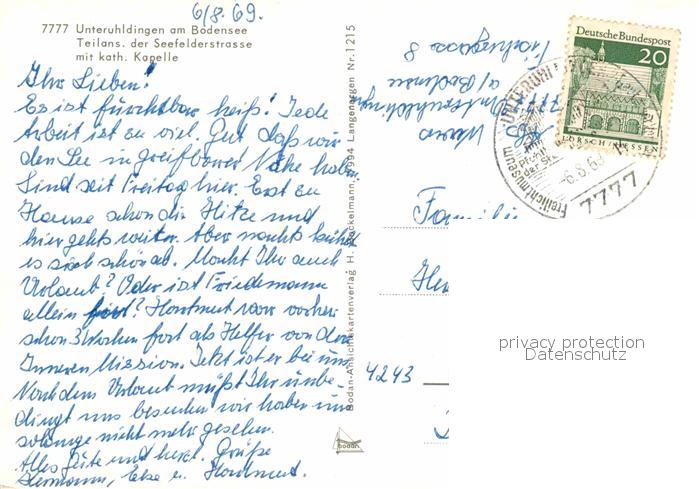 6/8. 69.
7777 Unteruhldingen am Bodensee
Teilans. der Seefelderstrasse
mit kath. Kapelle
Ihr Lieben!
Es ist furchtbar heiß! Jede
Arbeit ist zu viel. Gut daß wir
den See in greifbarer Nähe haben.
Sind seit Freitag hier. Erst zu
Hause schon die Hitze und
hier gehts weiter. Aber nachts kühlt
es sich schön ab. Macht Ihr auch
Urlaub? Oder ist Friedemann
allein fort? Hartmut war vorher
schon 3 Wochen fort als Helfer von der
Inneren Mission. Jetzt ist er bei uns.
Nach dem Urlaub müßt Ihr unbe-
dingt uns besuchen wir haben uns
solange nicht mehr gesehen.
Alles Gute und herzl. Grüße
Hermann, Else u. Hartmut.
Bodan-Ansichtskartenverlag H. Heckelmann, 7994 Langenargen Nr. 1215
bodan
Abs
7777 Unteruhldingen
a/Bodensee
8
Deutsche Bundespost
20
LORSCH/HESSEN
Freilichtmuseum
der
-6.8.69
7777
Familie
4243
privacy protection
Datenschutz